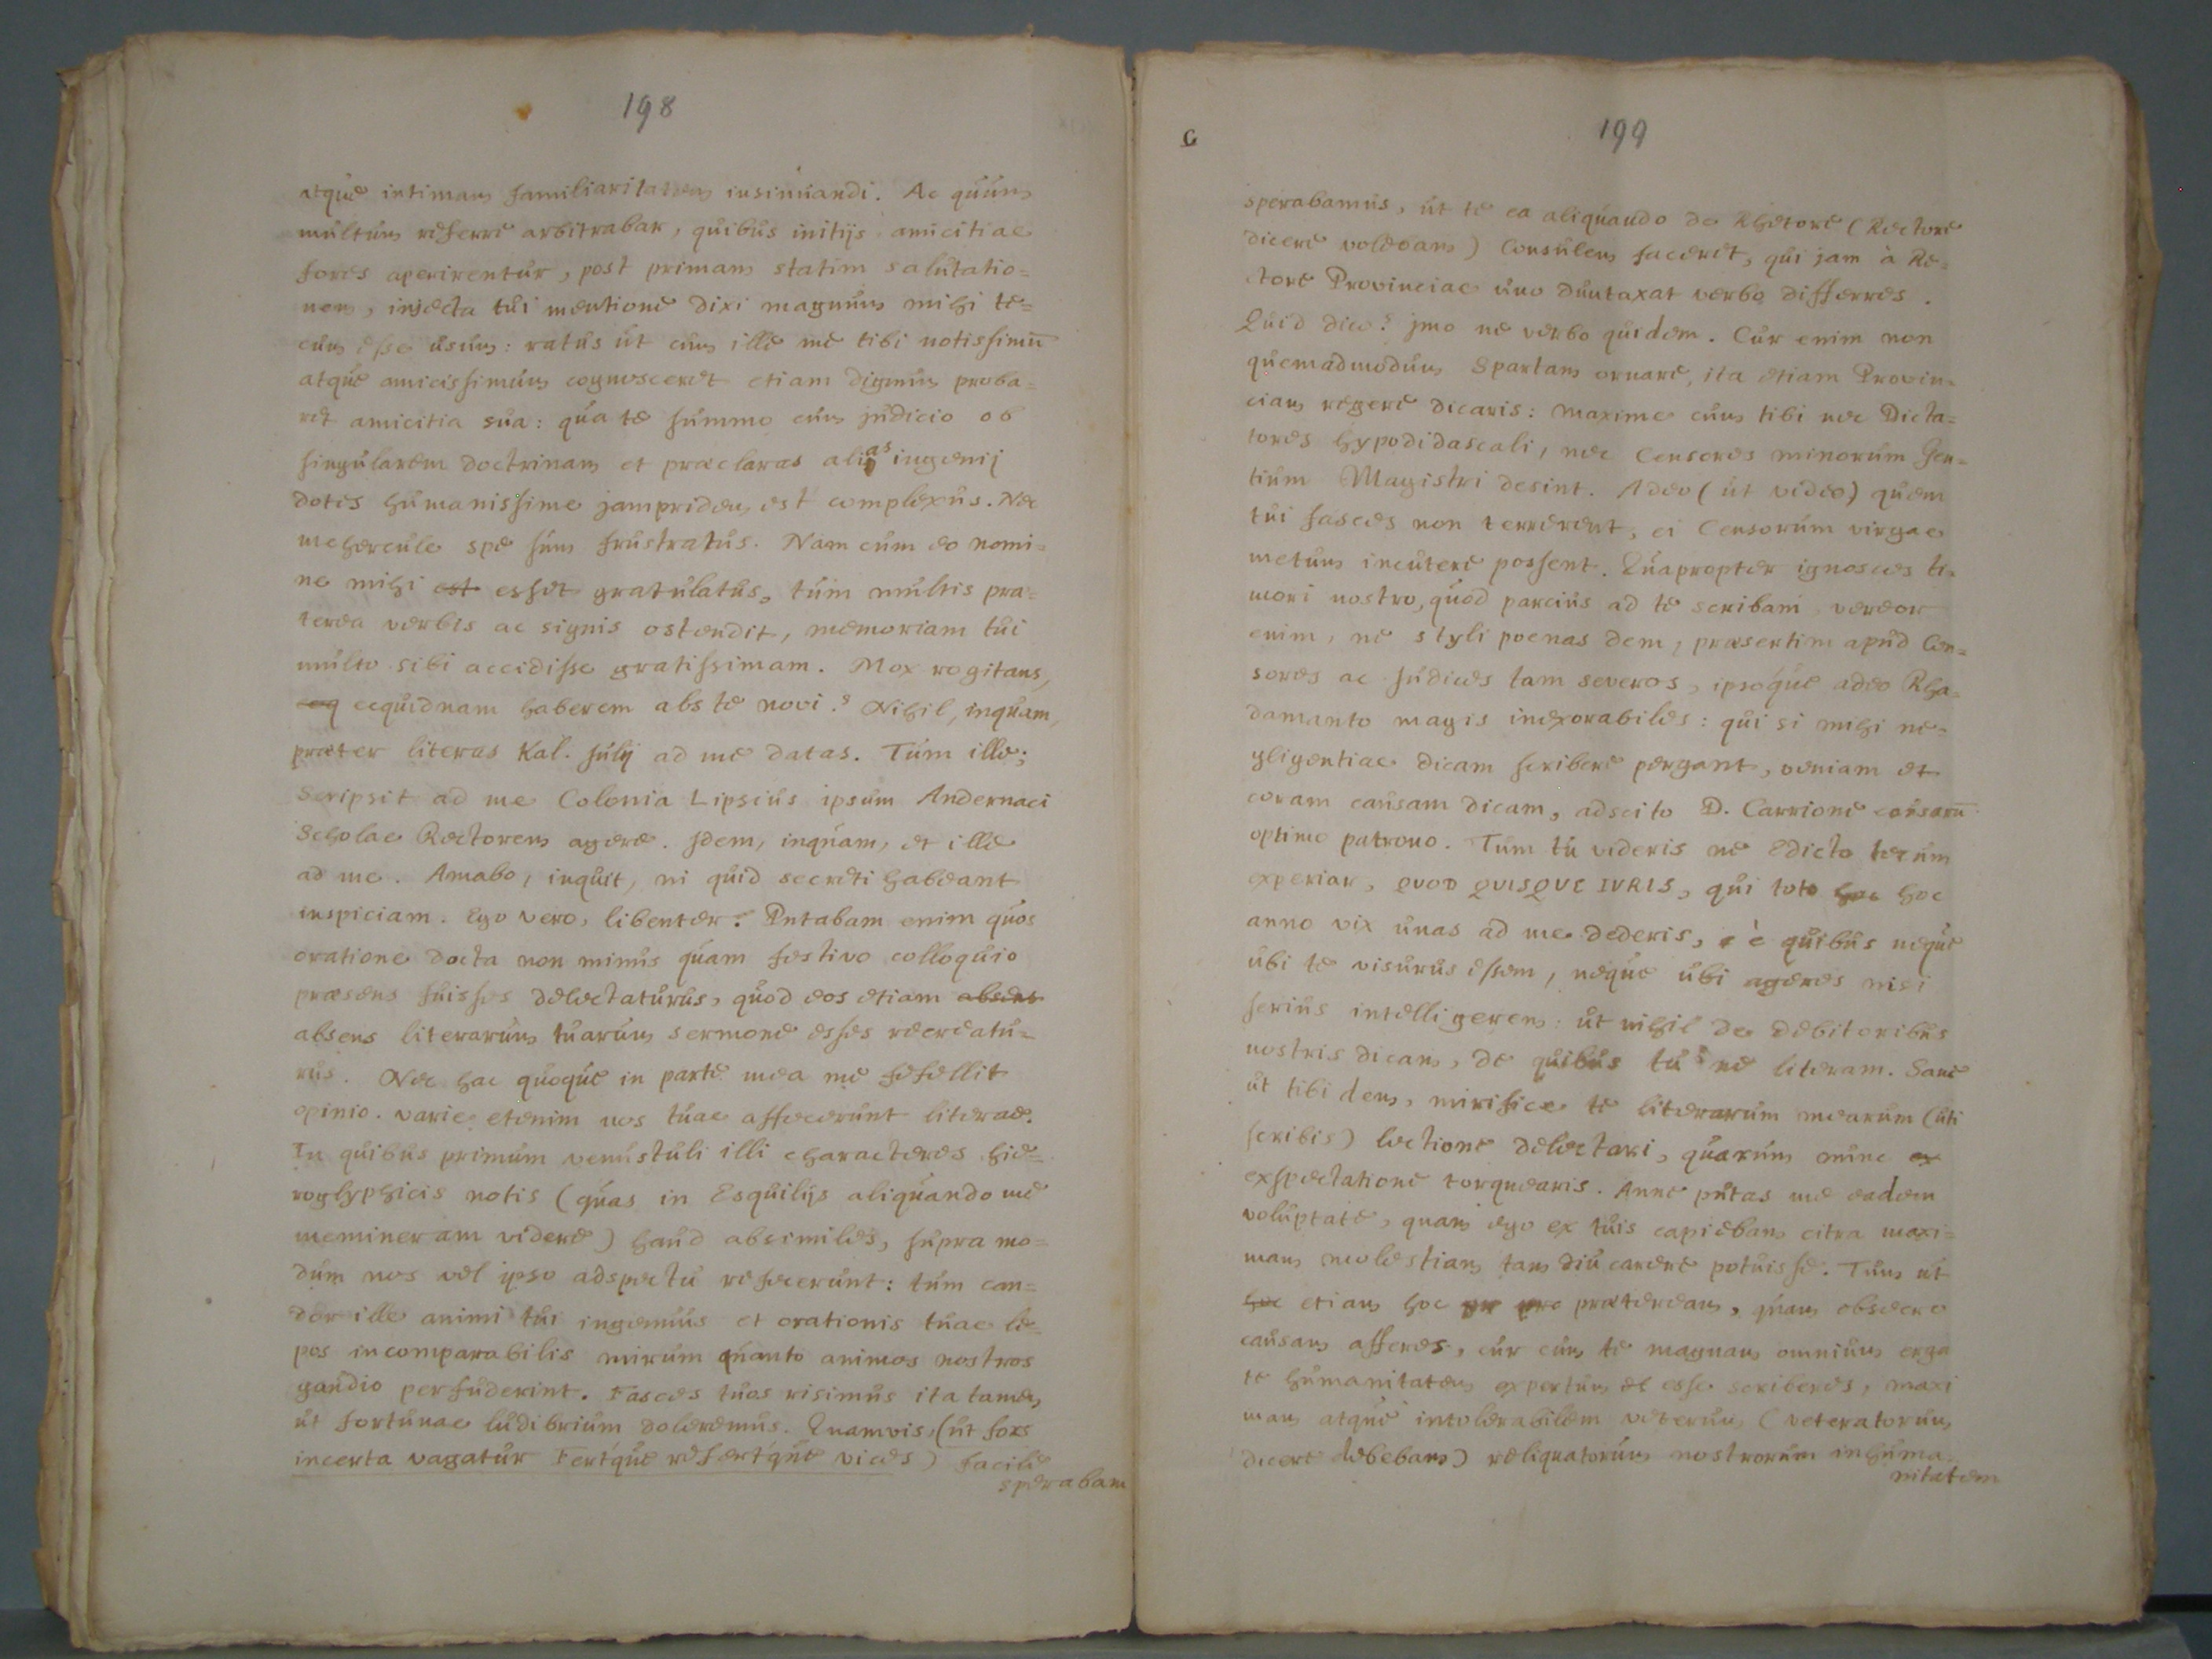 198
atque intimam familiaritatem insinuandi. Ac quum
multum referre arbitrabar, quibus initijs amicitiae
fores aperirentur, post primam statim salutatio=
nem, injecta tui mentione dixi magnum mihi te=
cum esse usum: ratus ut cum ille me tibi notissimū
atque amicissimum cognosceret etiam dignum proba=
ret amicitia sua: qua te summo cum judicio ob
singularem doctrinam et praeclaras alias ingenij
dotes humanissime jampridem est complexus. Nec
mehercule spe sum frustratus. Nam cum eo nomi=
ne mihi est esset gratulatus, tum multis prae=
terea verbis ac signis ostendit, memoriam tui
multo sibi accidisse gratissimam. Mox rogitans,
eeq ecquidnam haberem abs te novi? Nihil, inquam,
praeter literas Kal. Julij ad me datas. Tum ille;
Scripsit ad me Colonia Lipsius ipsum Andernaci
Scholae Rectorem agere. Idem, inquam, et ille
ad me. Amabo, inquit, ni quid secreti habeant
inspiciam. Ego vero, libenter. Putabam enim quos
oratione docta non minus quam festivo colloquio
praesens fuisses delectaturus, quod eos etiam absens
absens literarum tuarum sermone esses recreatu=
rus. Nec hac quoque in parte mea me fefellit
opinio. varie etenim nos tuae affecerunt literae.
In quibus primum venustuli illi characteres hie=
roglyphicis notis (quas in Esquilijs aliquando me
memineram videre) haud absimiles, supra mo=
dum nos vel ipso adspectu refecerunt: tum can=
dor ille animi tui ingenuus et orationis tuae le=
pos incomparabilis mirum quanto animos nostros
gaudio perfuderint. Fasces tuos risimus ita tamen
ut fortunae ludibrium doleremus. Quamvis (ut fors
incerta vagatur Fertque refertque vices) facile
sperabam
G
199
sperabamus, ut te ea aliquando de Rhetore (Rectore
dicere volebam) Consulem faceret, qui jam à Re=
ctore Provinciae uno duntaxat verbo differres.
Quid dico? jmo ne verbo quidem. Cur enim non
quemadmodum Spartam ornare, ita etiam Provin=
ciam regere dicaris: maxime cum tibi nec Dicta=
tores hypodidascali, nec Censores minorum Gen=
tium Magistri desint. Adeo (ut video) quem
tui fasces non terrerent, ei Censorum virgae
metum incutere possent. Quapropter ignosces ti=
mori nostro, quod parcius ad te scribam vereor
enim, ne styli poenas dem, praesertim apud Cen=
sores ac Judices tam severos, ipsoque adeo Rha=
damanto magis inexorabiles: qui si mihi ne=
gligentiae dicam scribere pergant, veniam et
coram causam dicam, adscito D. Carrione causarū
optimo patrono. Tum tu videris ne Edicto tecum
experiar, QVOD QVISQVE IVRIS, qui toto hoc hoc
anno vix unas ad me dederis, e è quibus neque
ubi te visurus essem, neque ubi ageres nisi
serius intelligerem: ut nihil de debitoribus
nostris dicam, de quibus tu? ne literam. Sane
ut tibi dem, mirifice te literarum mearum (uti
scribis) lectione delectari, quarum nunc ex
exspectatione torquearis. Anne putas me eadem
voluptate, quam ego ex tuis capiebam citra maxi=
mam molestiam tam diu carere potuisse. Tum ut
hoc etiam hoc pr pre praeteream, quam obsecro
causam afferes, cur cum te magnam omnium erga
te humanitatem expertum et esse scriberes, maxi
mam atque intolerabilem veterum (veteratorum
dicere debebam) reliquatorum nostrorum inhuma=
nitatem